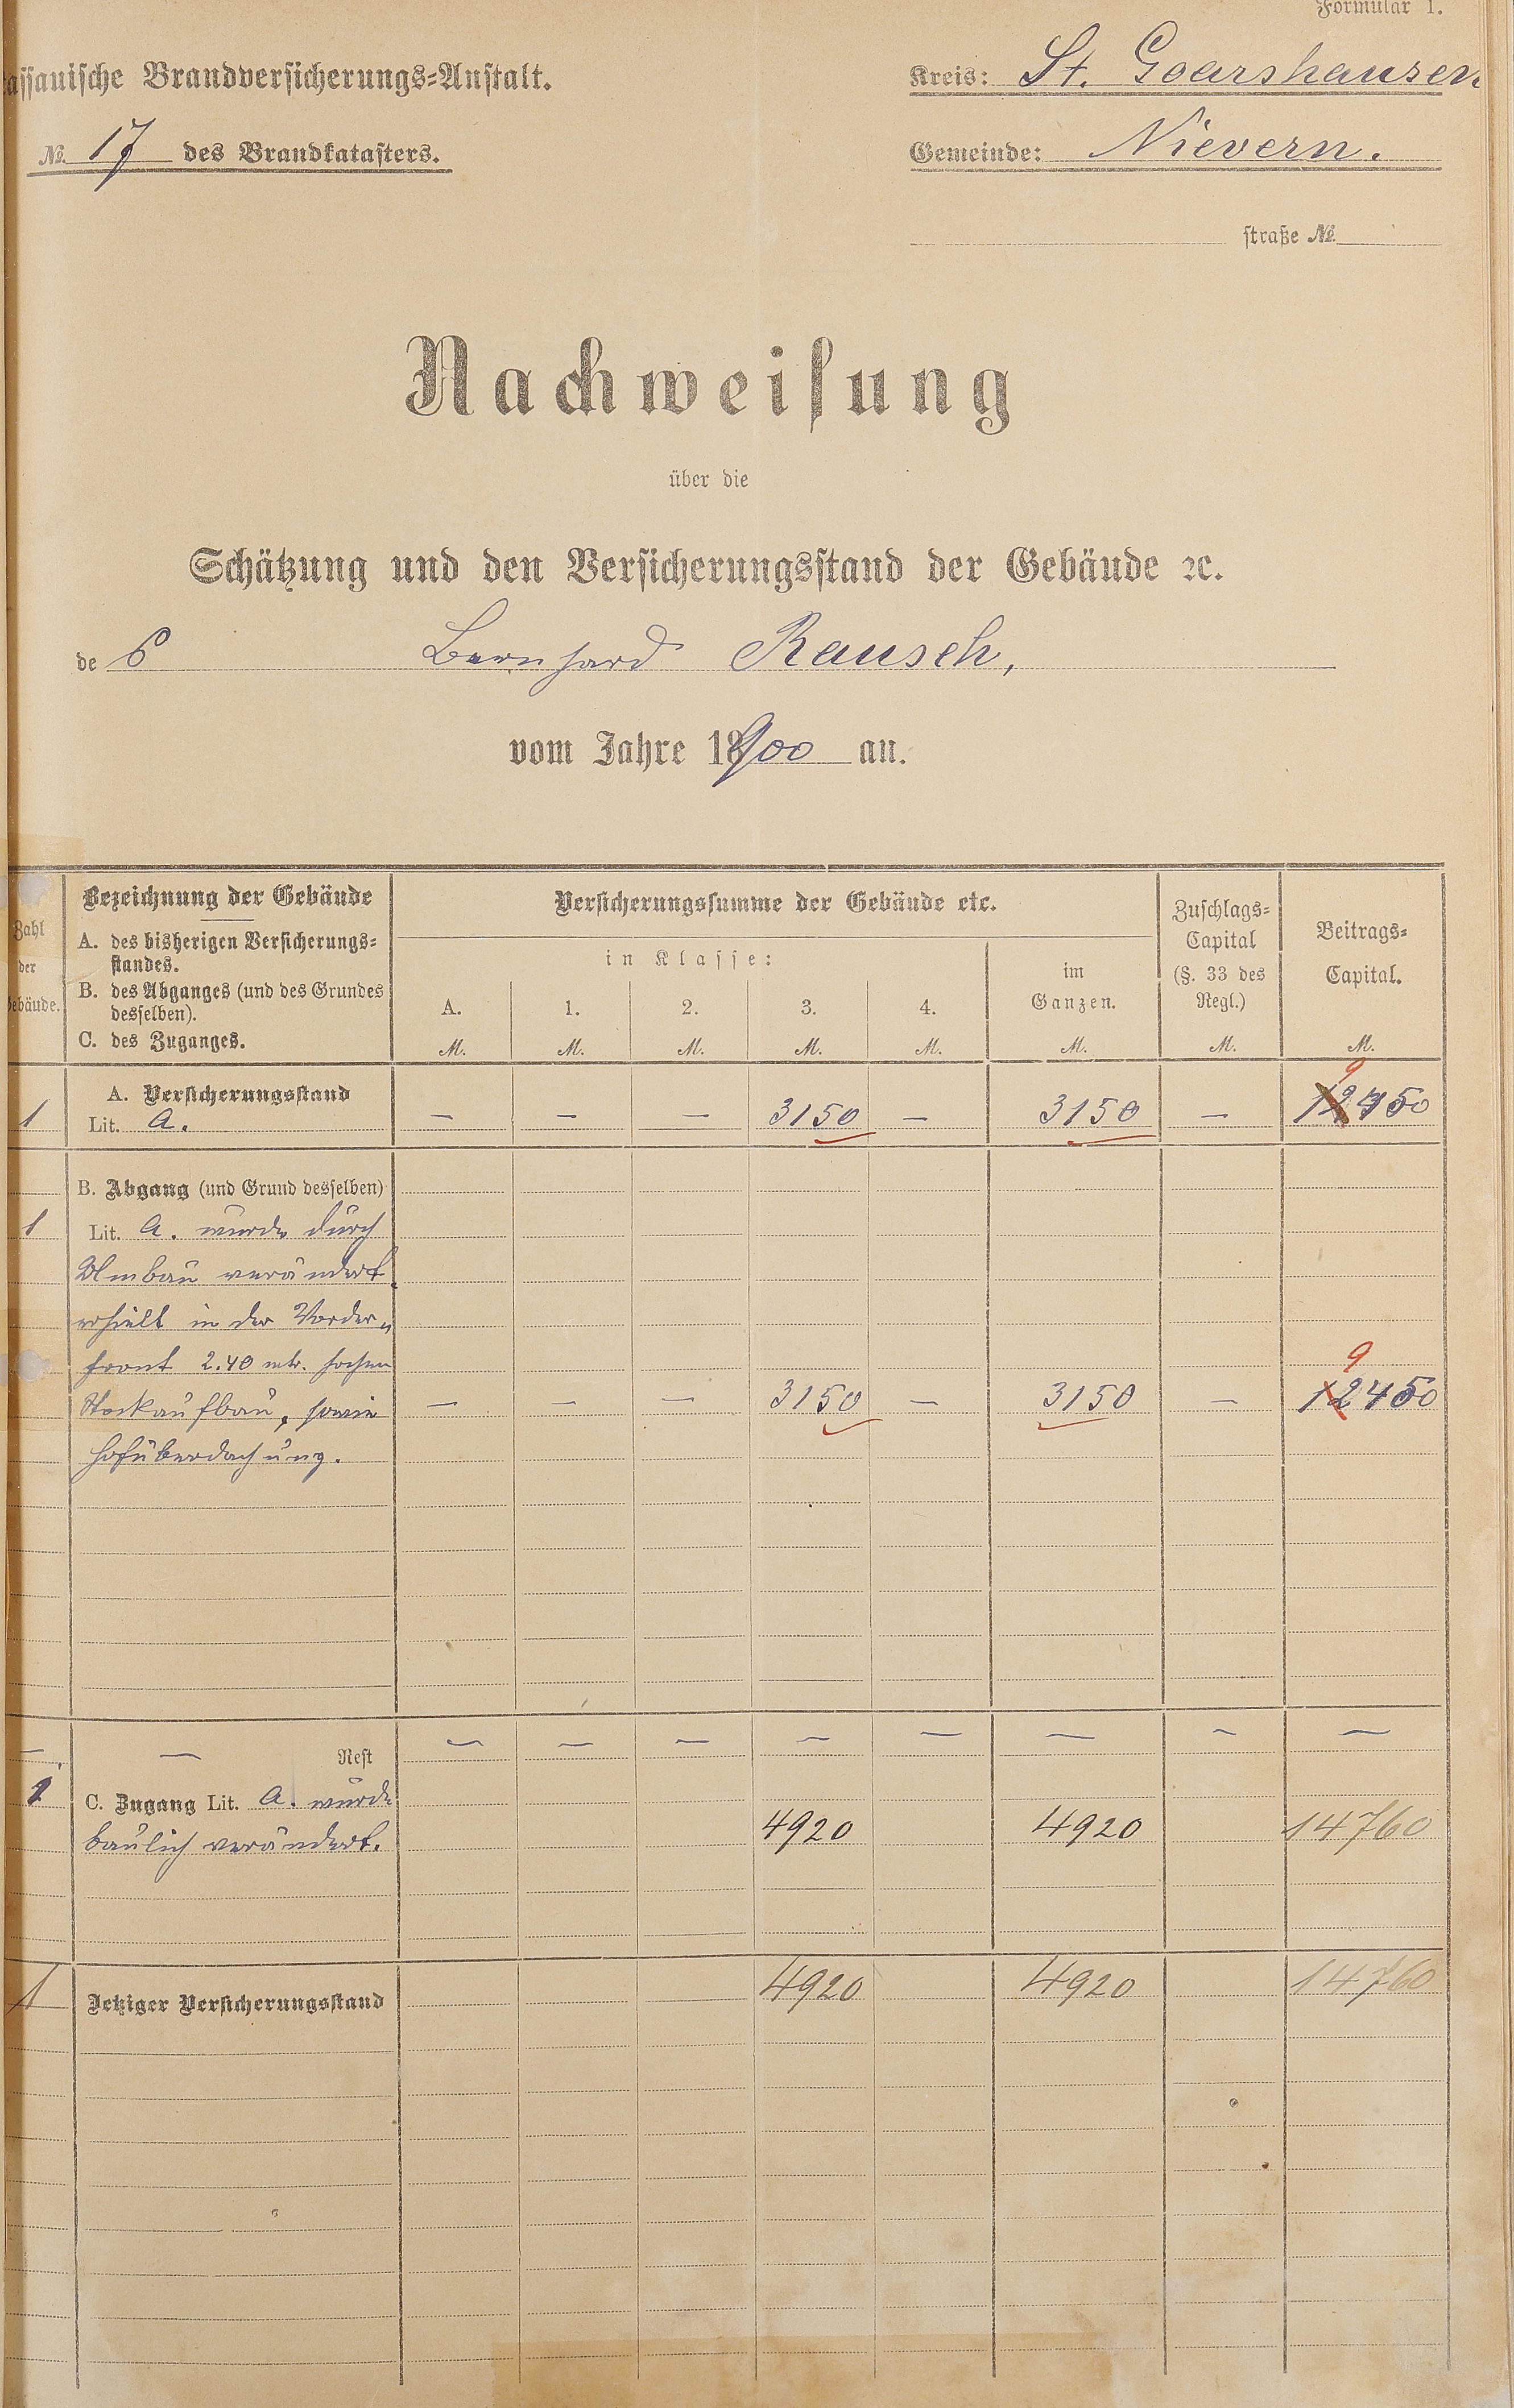 Formular 1.
assauische Brandversicherungs=Anstalt.
Kreis: St. Goarshausen
№ 17 des Brandkatasters.
Gemeinde: Nievern.
straße №
Nachweisung
über die
Schätzung und den Versicherungsstand der Gebäude ꝛc.
des Bernhard Rausch,
vom Jahre 1900 an.
Zahl der Gebäude.
Bezeichnung der Gebäude
A. des bisherigen Versicherungs=
standes.
B. des Abganges (und des Grundes
desselben).
C. des Zuganges.
Versicherungssumme der Gebäude etc.
in Klasse:
A. 1. 2. 3. 4.
im
Ganzen.
Zuschlags=
Capital
(§. 33 des
Regl.)
Beitrags=
Capital.
M. M. M. M. M. M. M. M.
A. Versicherungsstand
9
1 Lit. a. — — — 3150 — 3150 — 12450
B. Abgang (und Grund desselben)
1 Lit. a. wurde durch
Umbau verändert,
erhielt in der Vorder„
front 2.40 mtr. hohen
9
Stockaufbau, sowie — — — 3150 — 3150 — 12450
Hofüberdachung.
— — Rest — — — — — — — —
1 C. Zugang Lit. a. wurde
baulich verändert. 4920 4920 14760
1 Jetziger Versicherungsstand 4920 4920 14760